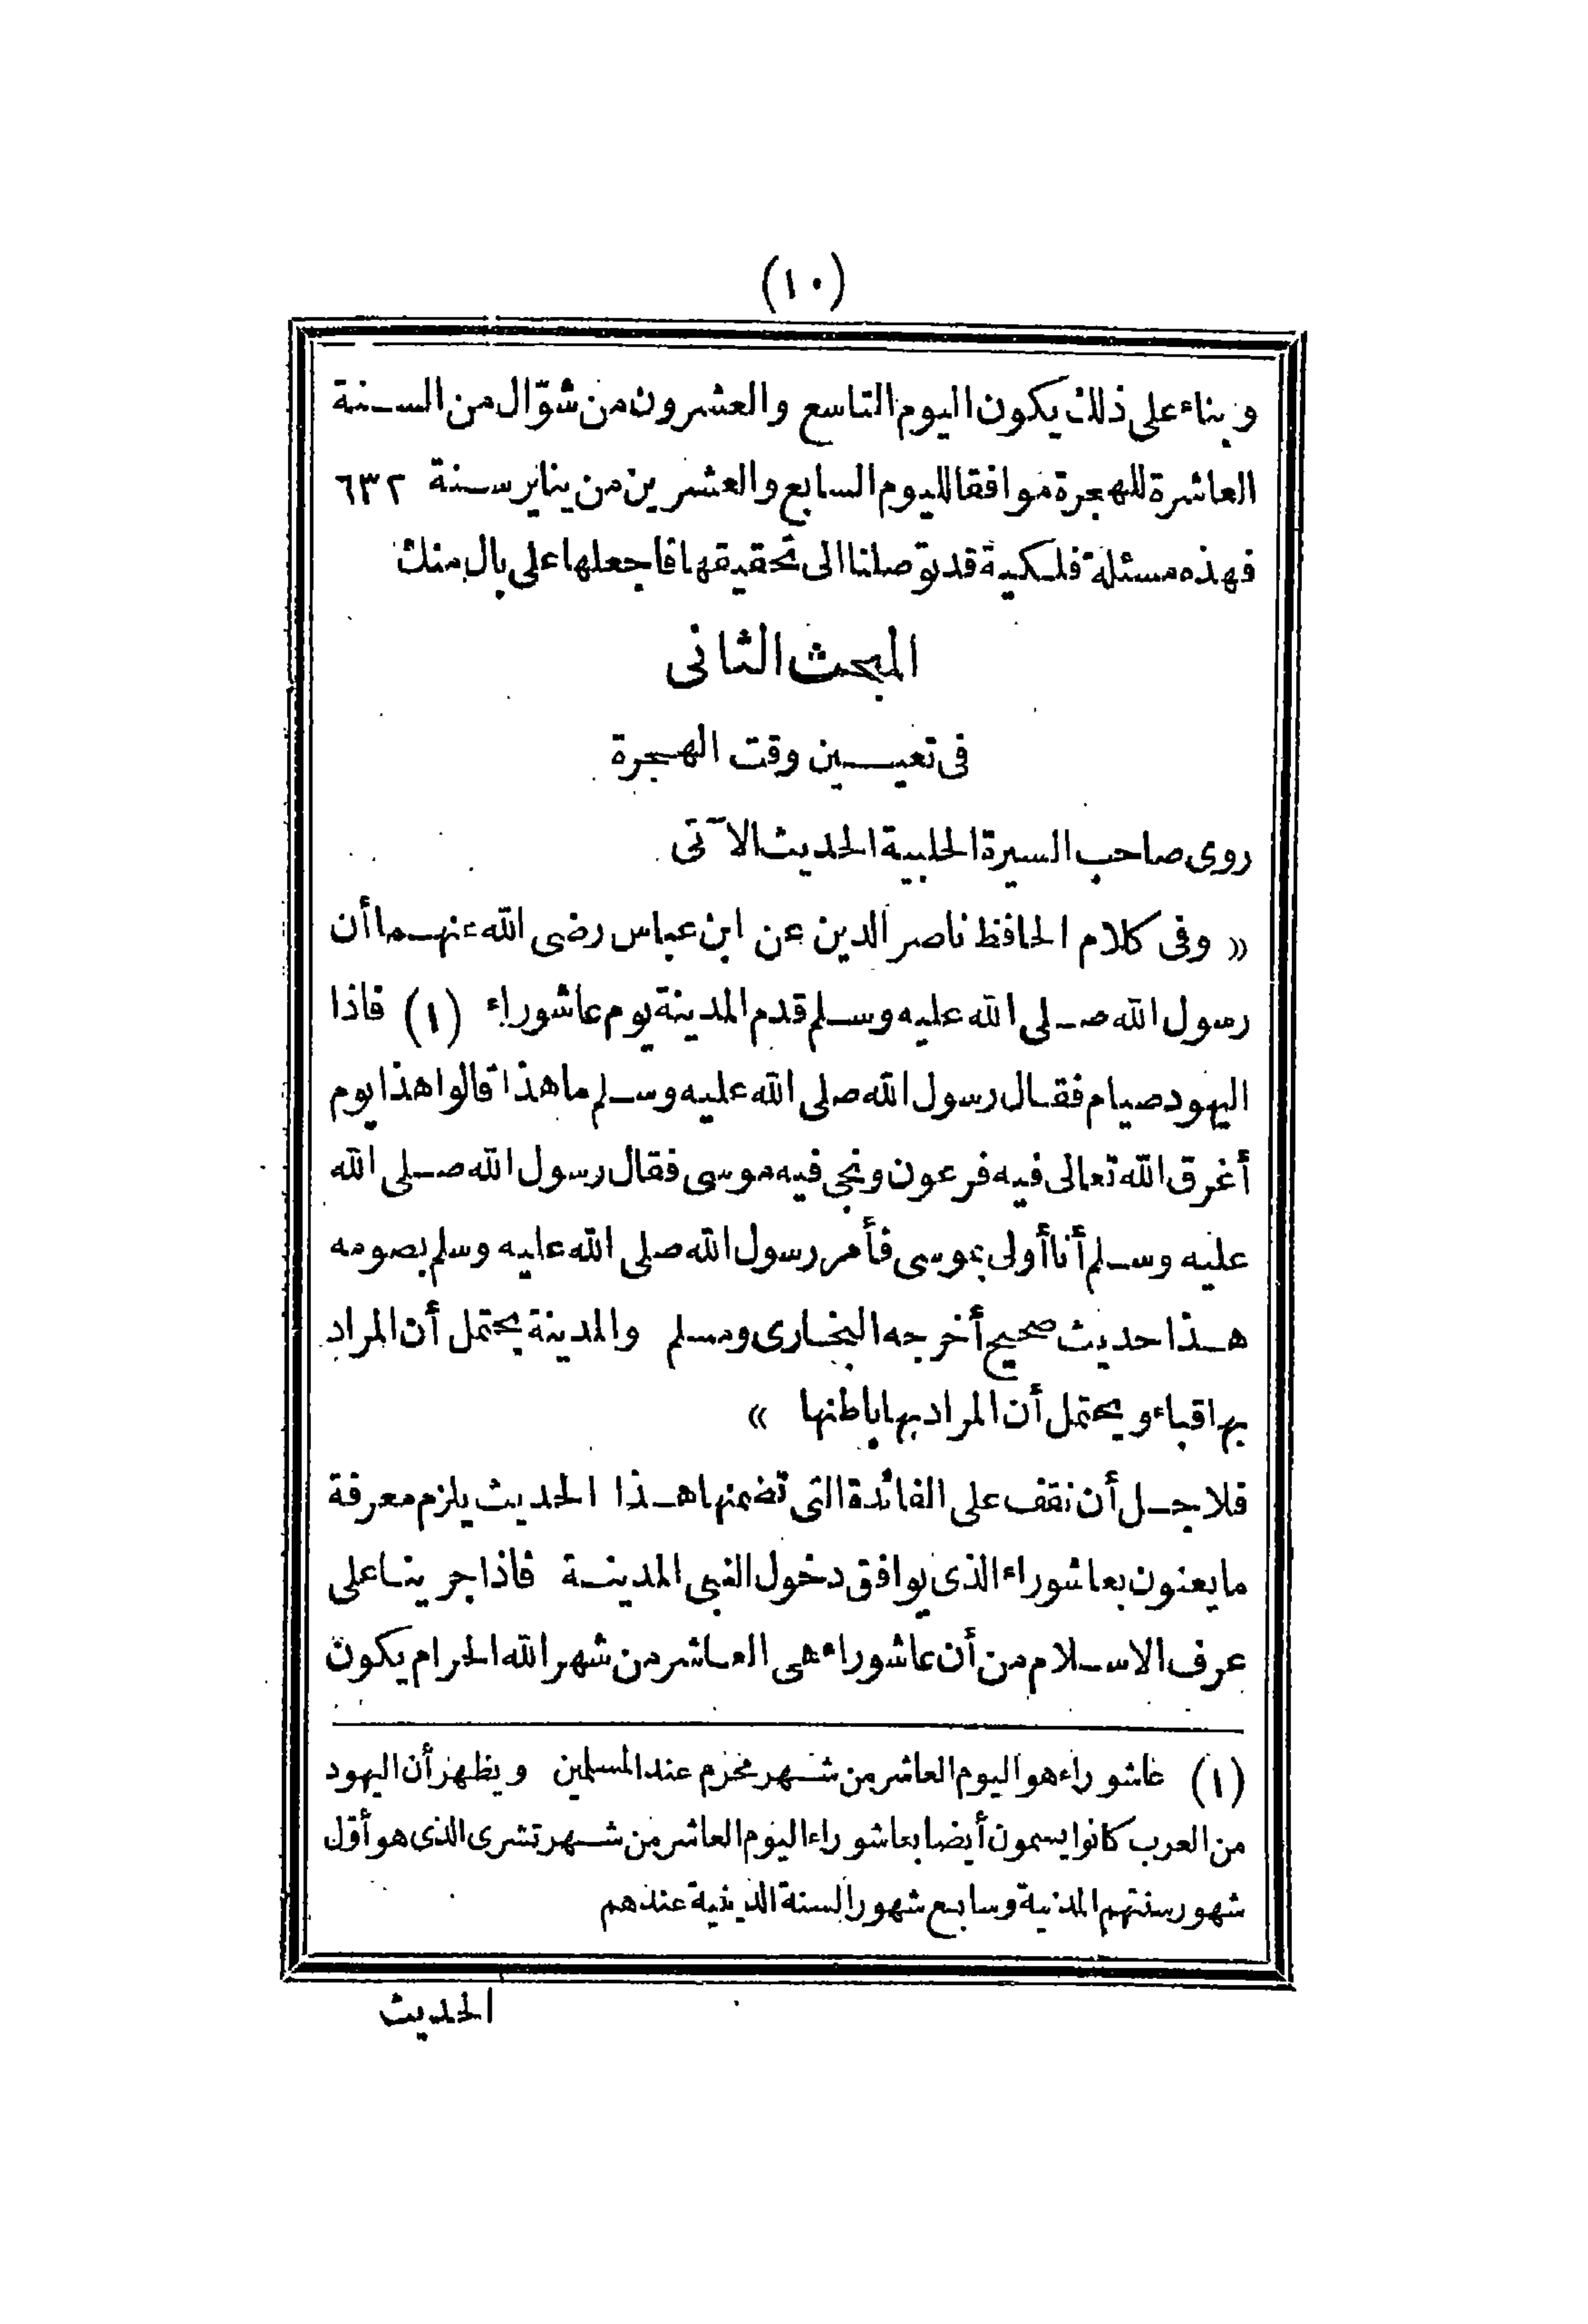 (١٠)
وبناء على ذلك يكون اليوم التاسع والعشرون من شوّال من السنة
العاشرة للهجرة موافقا لليوم السابع والعشرين من يناير سنة ٦٣٢
فهذه مسئلة فلكية قد توصلنا الى تحقيقها فاجعلها على بال منك
المبحث الثانى
فى تعيين وقت الهجرة
روى صاحب السيرة الحلبية الحديث الآتى
« وفى كلام الحافظ ناصر الدين عن ابن عباس رضى الله عنهما أن
رسول الله صلى الله عليه وسلم قدم المدينة يوم عاشوراء (١) فاذا
اليهود صيام فقال رسول الله صلى الله عليه وسلم ما هذا قالوا هذا يوم
أغرق الله تعالى فيه فرعون ونجى فيه موسى فقال رسول الله صلى الله
عليه وسلم أنا أولى بموسى فأمر رسول الله صلى الله عليه وسلم بصومه
هذا حديث صحيح أخرجه البخارى ومسلم والمدينة يحتمل أن المراد
بها قباء ويحتمل أن المراد بها باطنها »
فلاجل أن نقف على الفائدة التى تضمنها هذا الحديث يلزم معرفة
ما يعنون بعاشوراء الذى يوافق دخول النبى المدينة فاذا جرينا على
عرف الاسلام من أن عاشوراء هى العاشر من شهر الله الحرام يكون
(١) عاشوراء هو اليوم العاشر من شهر محرم عند المسلمين ويظهر أن اليهود
من العرب كانوا يسمون أيضا بعاشوراء اليوم العاشر من شهر تشرى الذى هو أوّل
شهور سنتهم المدنية وسابع شهور السنة الدينية عندهم
الحديث